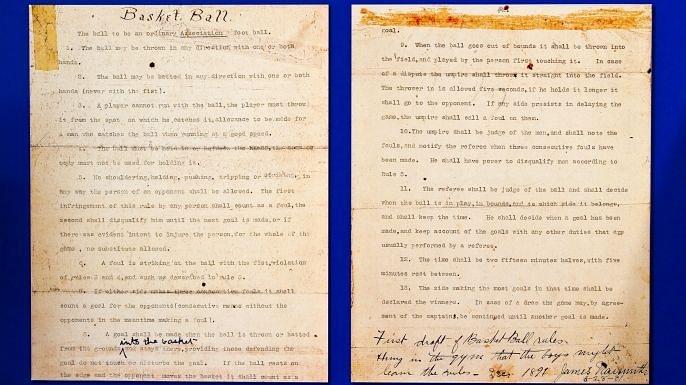 Basket Ball.
The ball to be an ordinary Association foot ball.
1. The ball may be thrown in any direction with one or both
hands.
2. The ball may be batted in any direction with one or both
hands (never with the fist).
3. A player cannot run with the ball, the player must throw
it from the spot on which he catches it, allowance to be made for
a man who catches the ball when running at a good speed.
4. The ball must be held in or between the hands, the arms or
body must not be used for holding it.
5. No shouldering, holding, pushing, tripping or striking, in
any way the person of an opponent shall be allowed. The first
infringement of this rule by any person shall count as a foul, the
second shall disqualify him until the next goal is made, or if
there was evident intent to injure the person, for the whole of the
game, no substitute allowed.
6. A foul is striking at the ball with the fist, violation
of rules 3 and 4, and such as described in rule 5.
7. If either side makes three consecutive fouls it shall
count a goal for the opponents (consecutive means without the
opponents in the meantime making a foul).
8. A goal shall be made when the ball is thrown or batted
into the basket
from the grounds and stays there, providing those defending the
goal do not touch or disturb the goal. If the ball rests on
the edge and the opponent moves the basket it shall count as a
goal.
9. When the ball goes out of bounds it shall be thrown into
the field, and played by the person first touching it. In case
of a dispute the umpire shall throw it straight into the field.
The thrower in is allowed five seconds, if he holds it longer it
shall go to the opponent. If any side presists in delaying
the game, the umpire shall call a foul on them.
10. The umpire shall be judge of the men, and shall note the
fouls, and notify the referee when three consecutive fouls have
been made. He shall have power to disqualify men according to
Rule 5.
11. The referee shall be judge of the ball and shall decide
when the ball is in play, in bounds, and to which side it belongs,
and shall keep the time. He shall decide when a goal has been
made, and keep account of the goals with any other duties that are
usually performed by a referee.
12. The time shall be two fifteen minutes halves, with five
minutes rest between.
13. The side making the most goals in that time shall be
declared the winners. In case of a draw the game may, by agree-
ment of the captains, be continued until another goal is made.
First draft of Basket Ball rules.
Hung in the gym that the boys might
learn the rules. Dec. 1891 James Naismith
6-28-31